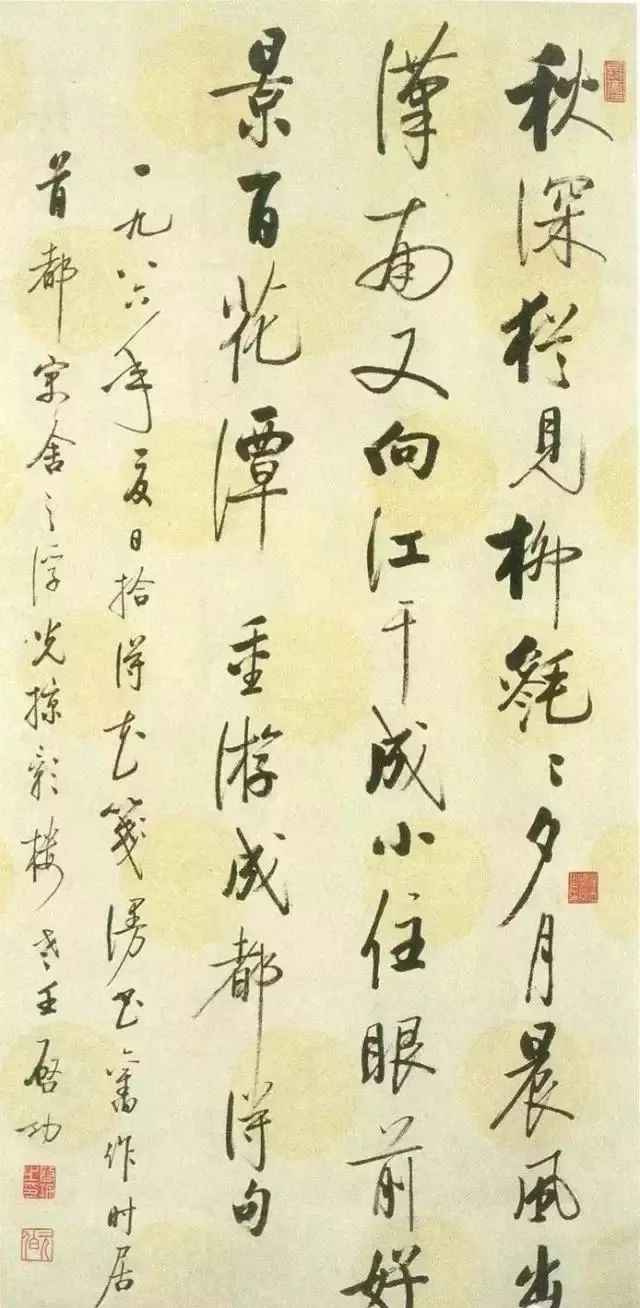 秋深犹見柳毿〻夕月晨風出
漢南又向江干成小住眼前好
景百花潭 重游成都得句
一九八六年夏日拾得花箋漫書舊作时居
首都寓舍之浮光掠影楼 壬 启功